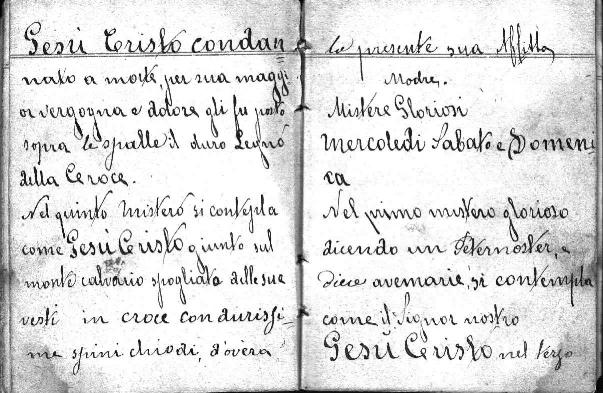 Gesù Cristo condan
nato a morte, per sua maggi
or vergogna e dolore gli fu posto
sopra le spalle il duro Legno
della Ceroce.
Nel quinto Misterò si contepla
come Gesù Cristo giunto sul
monte calvario spogliato delle sue
vesti in croce con durissi=
me spini chiodi, d'overa
la presente sua Afflitta
Madre.
Mistere Gloriosi
Mercoledi Sabato e Domeni
ca
Nel primo mistero glorioso
dicendo un Peternoster, e
diece avemarie, si contempla
come il Signor nostro
Gesù Ceristo nel terzo